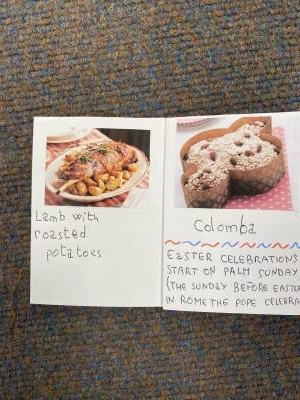 Lamb with
roasted
potatoes
Colomba
EASTER CELEBRATIONS
START ON PALM SUNDAY
(THE SUNDAY BEFORE EASTE
IN ROME THE POPE CELEBRA